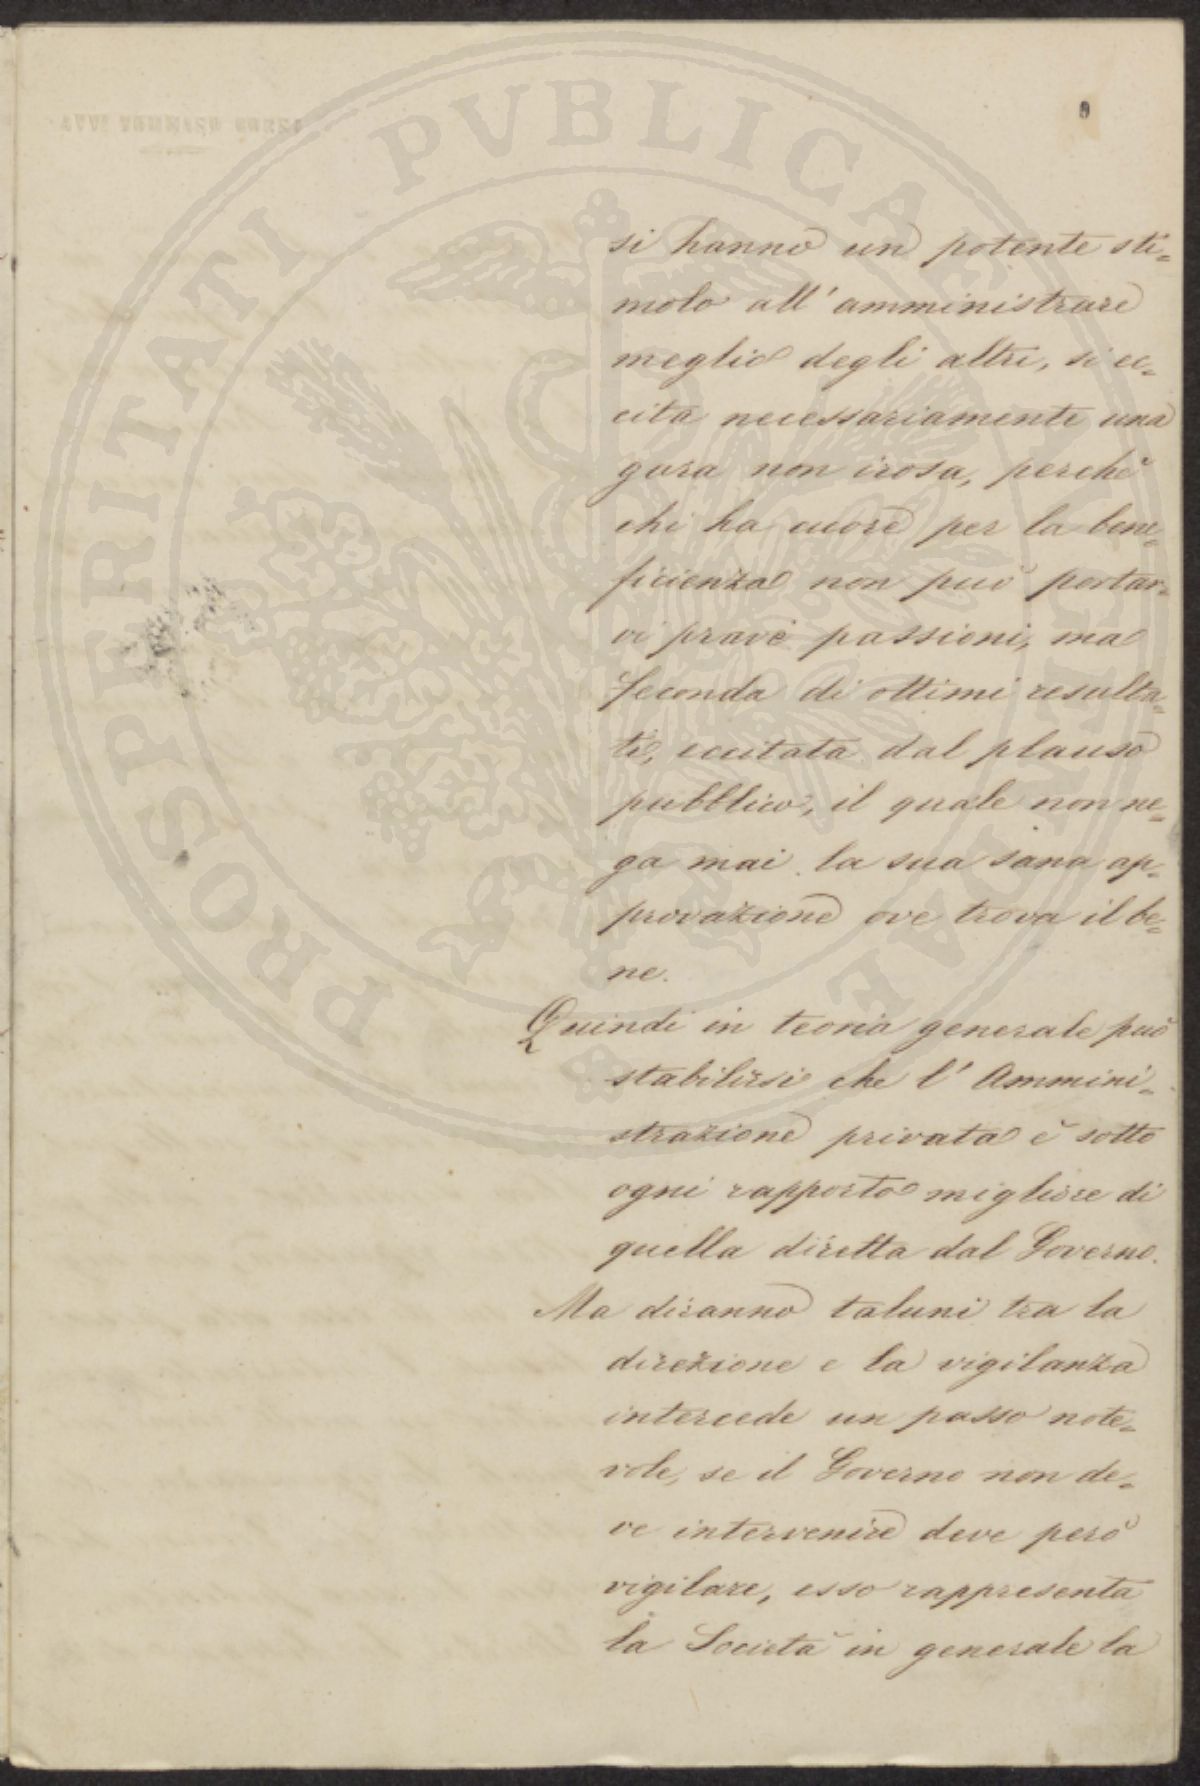 9
PROSPERITATI PVBLICAE AVGENDAE
si hanno un potente sti=
molo all' amministrare
meglio degli altri, si ec=
cita necessariamente una
gara non irosa, perchè
chi ha cuore per la bene=
ficienza non può portar=
vi prave passioni, ma
feconda di ottimi resulta=
ti, eccitata dal plauso
pubblico, il quale non ne=
ga mai la sua sana ap=
provazione ove trova il be=
ne.
Quindi in teoria generale può
stabilirsi che l' Ammini=
strazione privata è sotto
ogni rapporto migliore di
quella diretta dal Governo.
Ma diranno taluni tra la
direzione e la vigilanza
intercede un passo note=
vole, se il Governo non de=
ve intervenire deve però
vigilare, esso rappresenta
la Società in generale la